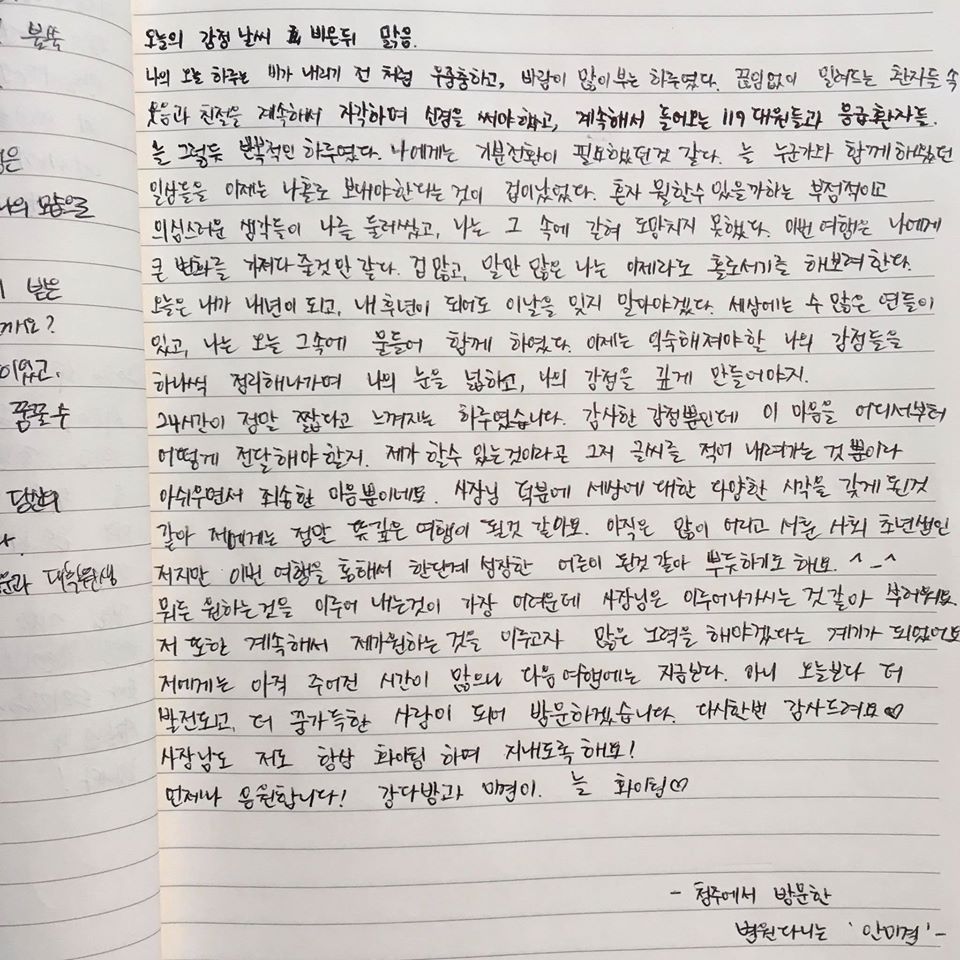 불쑥
은
나의 모습을
받은
까요?
이었고.
꿈꾸
당신의
과 대학원생
오늘의 감정 날씨 비온뒤 맑음.
나의 오늘 하루는 비가 내리기 전 처럼 우중충하고, 바람이 많이부는 하루였다. 끊임없이 밀려드는 환자들 속
웃음과 친절을 계속해서 자각하며 신경을 써야 했고, 계속해서 들어오는 119 대원들과 응급환자들.
늘 그렇듯 반복적인 하루였다. 나에게는 기분전환이 필요했던것 같다. 늘 누군가와 함께 해왔던
일상들을 이제는 나홀로 보내야한다는 것이 겁이났었다. 혼자 뭘할수 있을까하는 부정적이고
의심스러운 생각들이 나를 둘러쌌고, 나는 그 속에 갇혀 도망치지 못했다. 이번 여행은 나에게
큰 변화를 가져다 준것만 같다. 겁 많고, 말만 많은 나는 이제라도 홀로서기를 해보려한다.
오늘은 내가 내년이 되고, 내 후년이 되어도 이날을 잊지 말아야겠다. 세상에는 수 많은 연들이
있고, 나는 오늘 그속에 물들어 함께 하였다. 이제는 익숙해져야할 나의 감정들을
하나씩 정리해나가며 나의 눈을 넓하고, 나의 감정을 깊게 만들어야지.
24시간이 정말 짧다고 느껴지는 하루였습니다. 감사한 감정뿐인데 이 마음을 어디서부터
어떻게 전달해야 할지. 제가 할수 있는것이라곤 그저 글씨를 적어 내려가는 것 뿐이라
아쉬우면서 죄송한 마음뿐이네요. 사장님 덕분에 세상에 대한 다양한 시각을 갖게 된것
같아 저에게는 정말 뜻깊은 여행이 될것 같아요. 아직은 많이 어리고 서툰 사회 초년생인
저지만 이번 여행을 통해서 한단계 성장한 어른이 된것 같아 뿌듯하기도 해요. ^_^
뭐든 원하는것을 이루어 내는것이 가장 어려운데 사장님은 이루어나가시는 것같아 부러워요
저 또한 계속해서 제가원하는 것을 이루고자 많은 노력을 해야겠다는 계기가 되었어요
저에게는 아직 주어진 시간이 많으니 다음여행에는 지금보다. 아니 오늘보다 더
발전되고, 더 꿈가득한 사람이 되어 방문하겠습니다. 다시한번 감사드려요♡
사장님도 저도 항상 화이팅 하며 지내도록해요!
언제나 응원합니다! 강다방과 미경이. 늘 화이팅♡
- 청주에서 방문한
병원다니는 '안미경' -